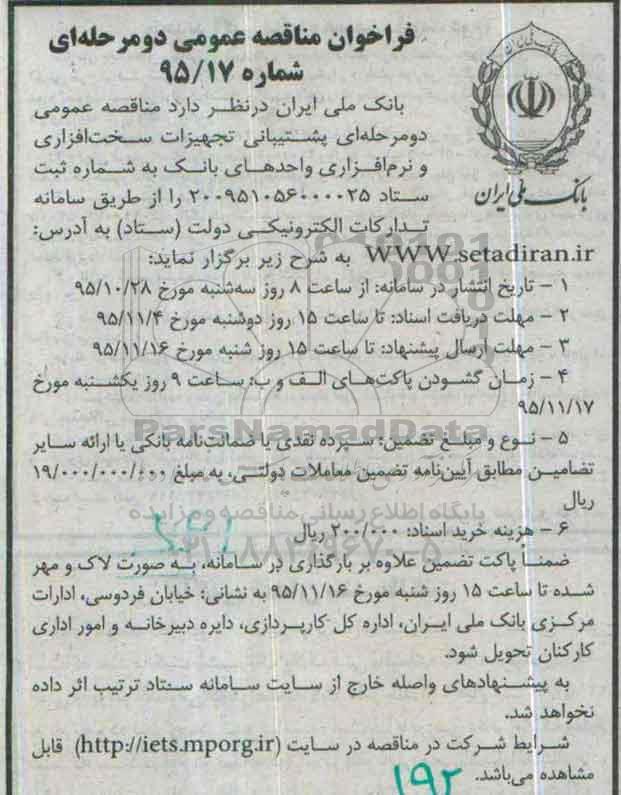 فراخوان مناقصه عمومی دومرحله‌ای
شماره ۹۵/۱۷
بانک ملی ایران
بانک ملی ایران درنظر دارد مناقصه عمومی
دومرحله‌ای پشتیبانی تجهیزات سخت‌افزاری
و نرم‌افزاری واحدهای بانک به شماره ثبت
ستاد ۲۰۰۹۵۱۰۵۶۰۰۰۰۲۵ را از طریق سامانه
تدارکات الکترونیکی دولت (ستاد) به آدرس:
WWW.setadiran.ir به شرح زیر برگزار نماید:
۱ – تاریخ انتشار در سامانه: از ساعت ۸ روز سه‌شنبه مورخ ۹۵/۱۰/۲۸
۲ – مهلت دریافت اسناد: تا ساعت ۱۵ روز دوشنبه مورخ ۹۵/۱۱/۴
۳ – مهلت ارسال پیشنهاد: تا ساعت ۱۵ روز شنبه مورخ ۹۵/۱۱/۱۶
۴ – زمان گشودن پاکت‌های الف و ب: ساعت ۹ روز یکشنبه مورخ
۹۵/۱۱/۱۷
ParsNamadData
۵ – نوع و مبلغ تضمین: سپرده نقدی یا ضمانت‌نامه بانکی یا ارائه سایر
تضامین مطابق آیین‌نامه تضمین معاملات دولتی، به مبلغ ۱۹/۰۰۰/۰۰۰/۰۰۰
ریال
پایگاه اطلاع رسانی مناقصه و مزایده
۶ – هزینه خرید اسناد: ۲۰۰/۰۰۰ ریال
ضمناً پاکت تضمین علاوه بر بارگذاری در سامانه، به صورت لاک و مهر
شده تا ساعت ۱۵ روز شنبه مورخ ۹۵/۱۱/۱۶ به نشانی: خیابان فردوسی، ادارات
مرکزی بانک ملی ایران، اداره کل کارپردازی، دایره دبیرخانه و امور اداری
کارکنان تحویل شود.
به پیشنهادهای واصله خارج از سایت سامانه ستاد ترتیب اثر داده
نخواهد شد.
شرایط شرکت در مناقصه در سایت (http://iets.mporg.ir) قابل
مشاهده می‌باشد.
۱۹۲